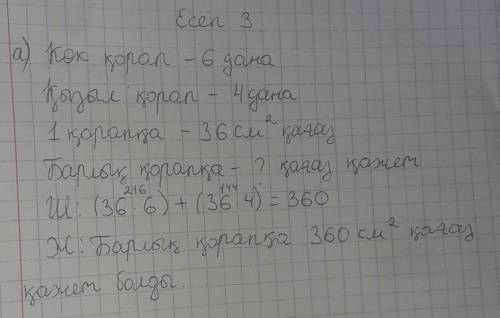 Есеп 3
а) Көк қорап - 6 дана
Қызыл қорап - 4 дана
1 қорапқа - 36 см² қағаз
Барлық қорапқа - ? қағаз қажет
216 144
Ш: (36 · 6) + (36 · 4) = 360
Ж: Барлық қорапқа 360 см² қағаз
қажет болды.